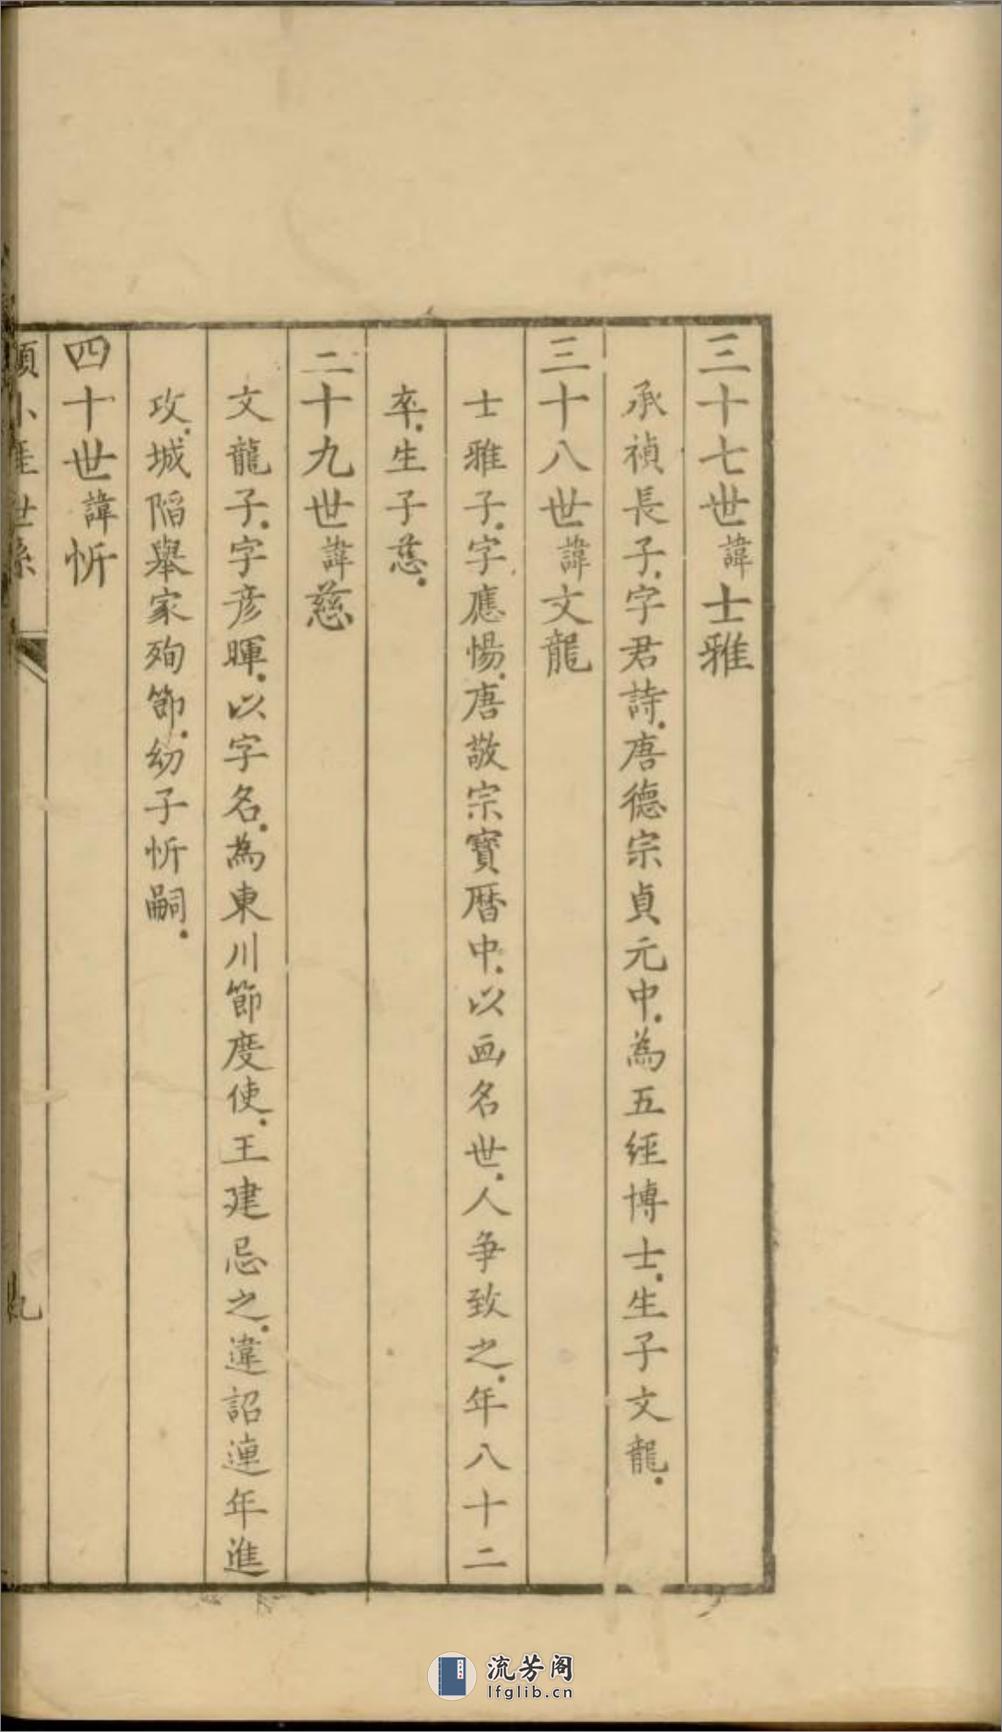 三十七世諱士雅
承禎長子.字君詩.唐德宗貞元中.為五經博士.生子文龍.
三十八世諱文龍
士雅子.字應惕.唐敬宗寶曆中.以画名世.人争致之.年八十二
卒.生子慈.
二十九世諱慈
文龍子.字彦暉.以字名.為東川節度使.王建忌之.違詔連年進
攻.城陷舉家殉節.幼子忻嗣.
四十世諱忻
世系
九
流芳阁
lfglib.cn